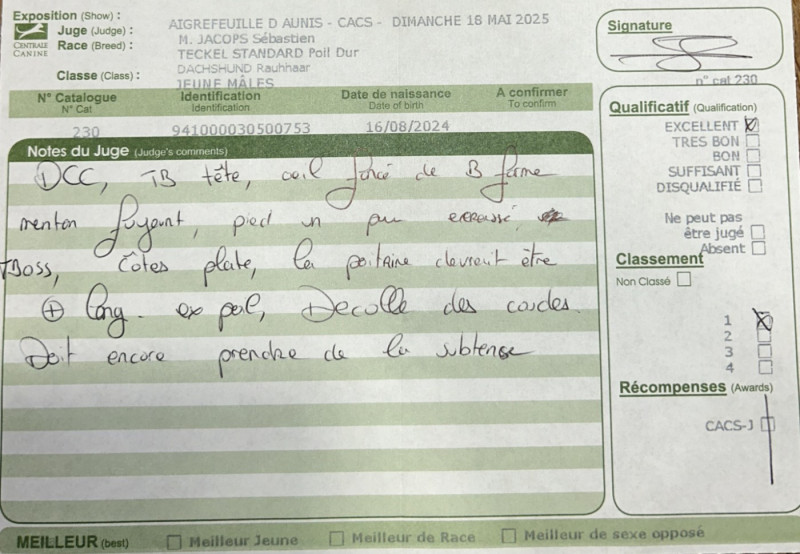 Exposition (Show) : AIGREFEUILLE D AUNIS - CACS - DIMANCHE 18 MAI 2025
Juge (Judge) : M. JACOPS Sébastien
Race (Breed) : TECKEL STANDARD Poil Dur
CENTRALE CANINE
DACHSHUND Rauhhaar
Classe (Class) : JEUNE MÂLES
Signature
n° cat 230
N° Catalogue Identification Date de naissance A confirmer
N° Cat Identification Date of birth To confirm
230 941000030500753 16/08/2024
Notes du Juge (Judge's comments)
DCC, TB tête, oeil foncé de B forme
menton fuyant, pied un peu
TBoss, Côtes plate, la poitaine devrait être
⊕ long. ex poil, Decolle des coudes.
Doit encore prendre de la
Qualificatif (Qualification)
EXCELLENT
TRES BON
BON
SUFFISANT
DISQUALIFIÉ
Ne peut pas
être jugé
Absent
Classement
Non Classé
1
2
3
4
Récompenses (Awards)
CACS-J
MEILLEUR (best) Meilleur Jeune Meilleur de Race Meilleur de sexe opposé